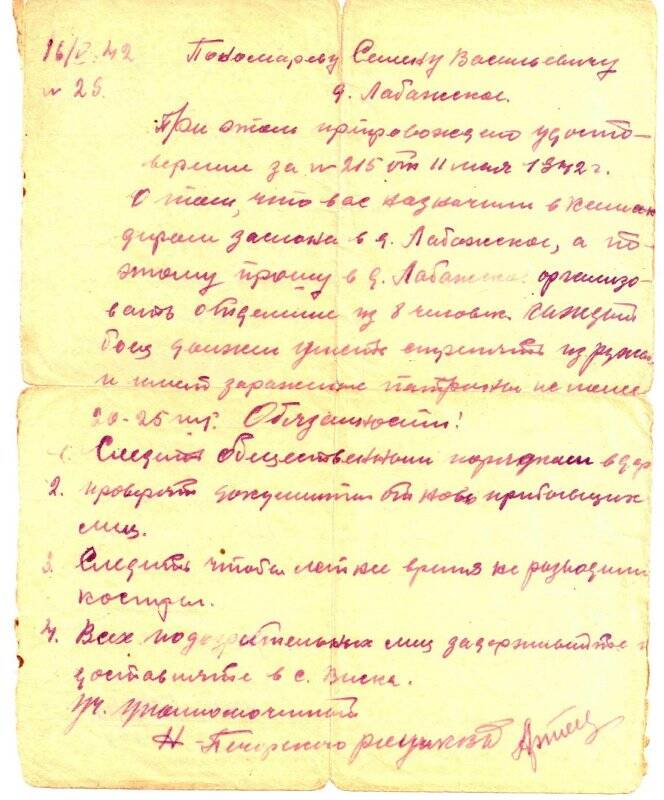 16/V-42 Пономареву Семену Васильевичу
№ 25. д. Лабажское.
При этом припровождаю удосто-
верение за № 215 от 11 мая 1942 г.
О том, что вас назначили в коман
дирам заслона в д. Лабажское, а по-
этому прошу в д. Лабажское организо-
вать отделение из 8 человек. Каждый
боец должен уметь стрелять из ружья
и имет заряженые патроны не менее
20-25 шт. Обязанности!
1. Следить общественным порядкам в дер
2. проверять документы от ново прибывших
лиц.
3. Следить чтобы летнее время не разводили
костры.
4. Всех подозрительных лиц задерживайте и
доставляйте в с. Виска.
Уч. уполномоченный
Н-Печорского